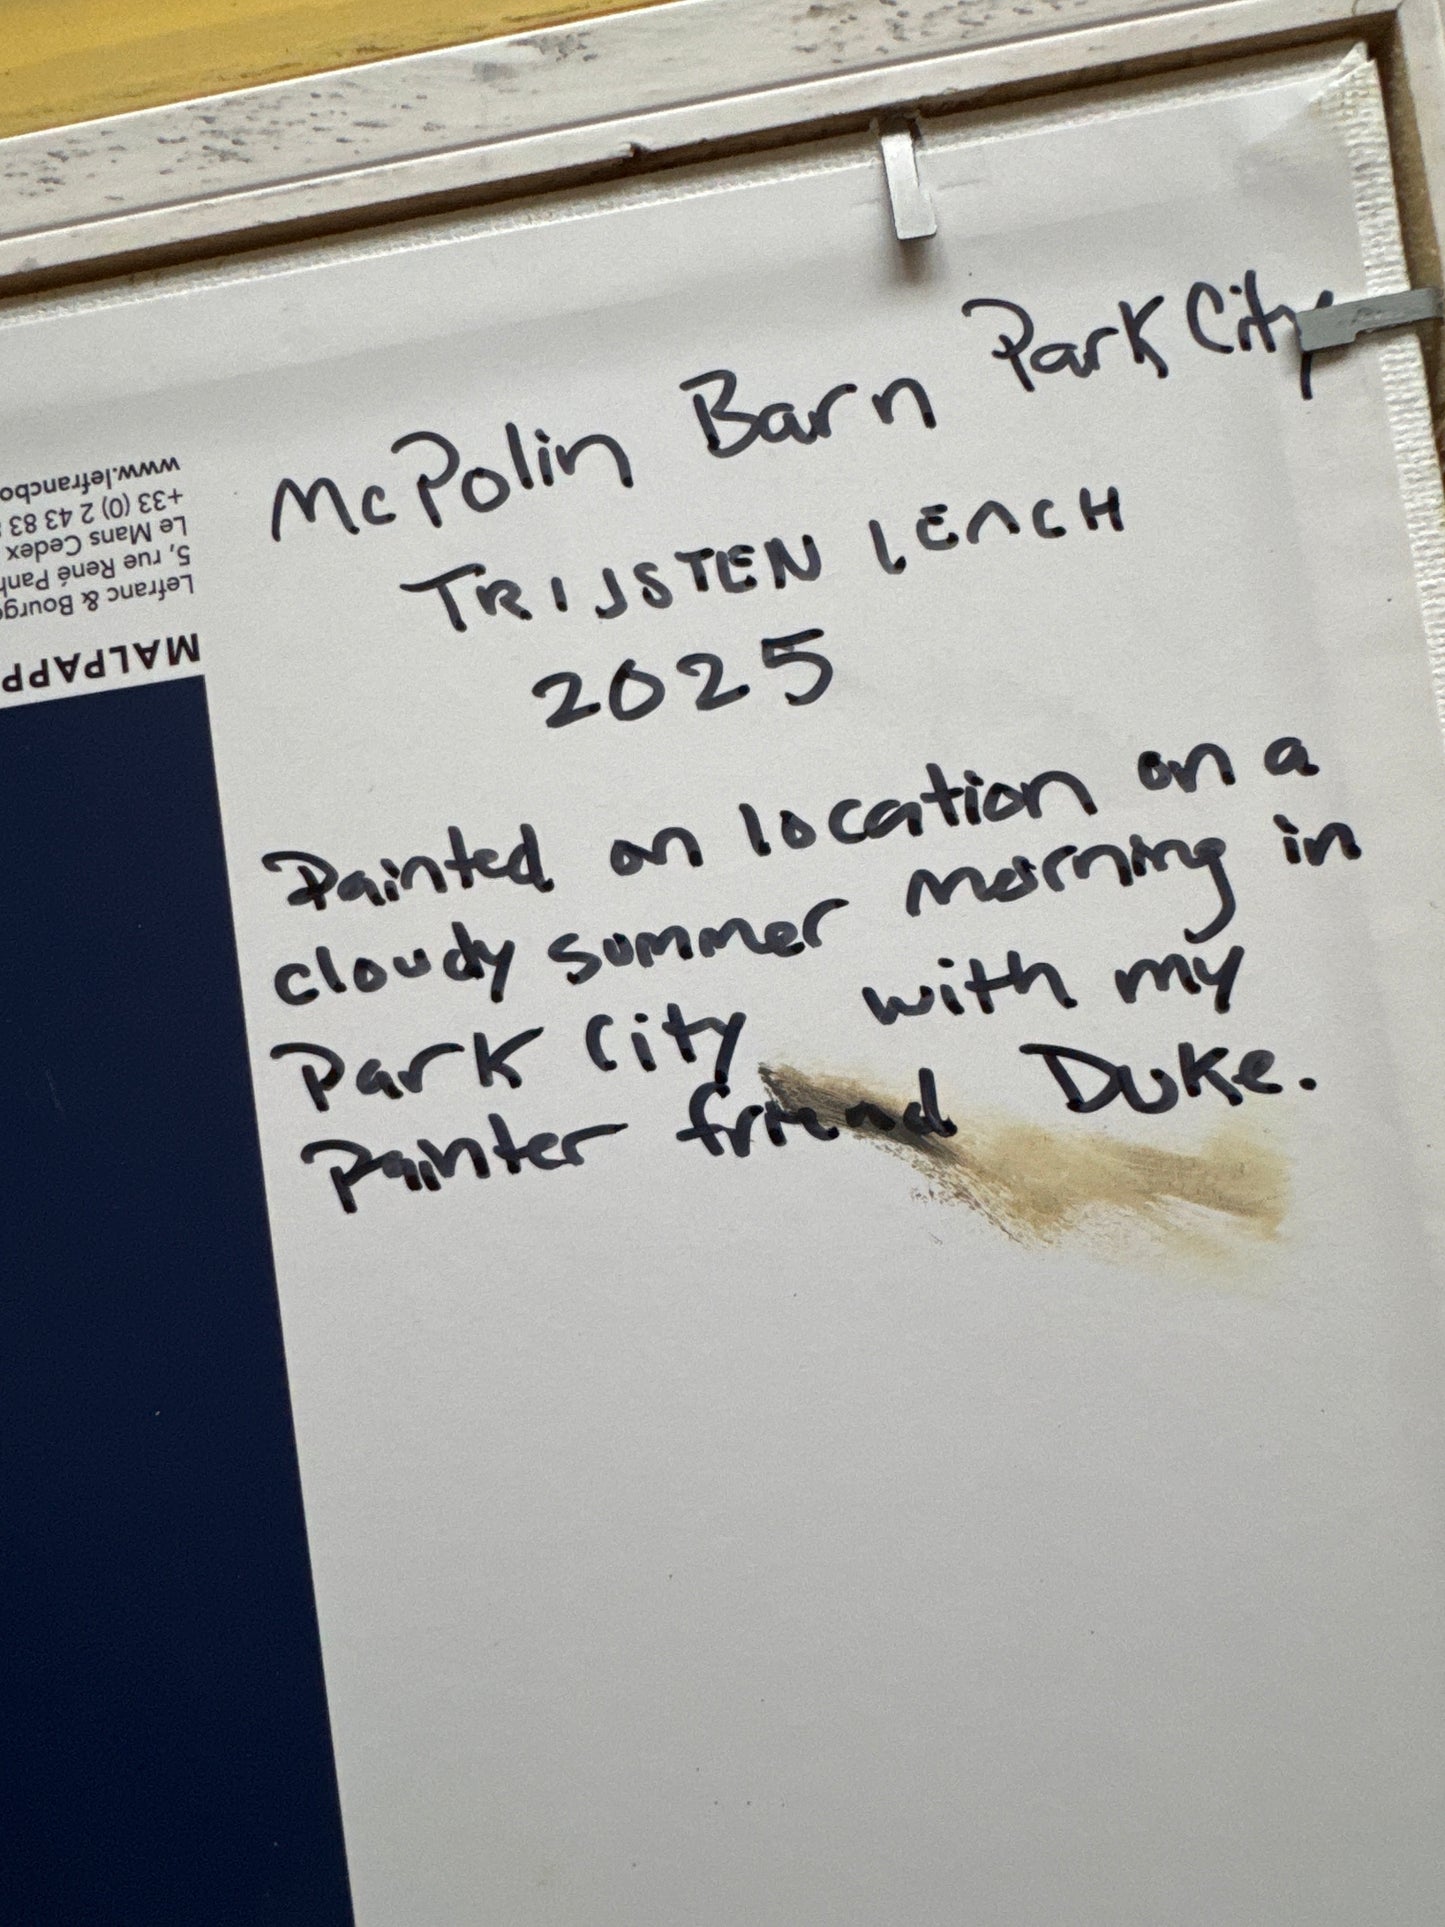 McPolin Barn Park City
TRIJSTEN LEACH
2025
Painted on location on a
cloudy summer morning in
Park City with my
Painter friend Duke.
MALPAPP
Lefranc & Bourge
5, rue René Panh
Le Mans Cedex
+33 (0) 2 43 83
www.lefrancbo